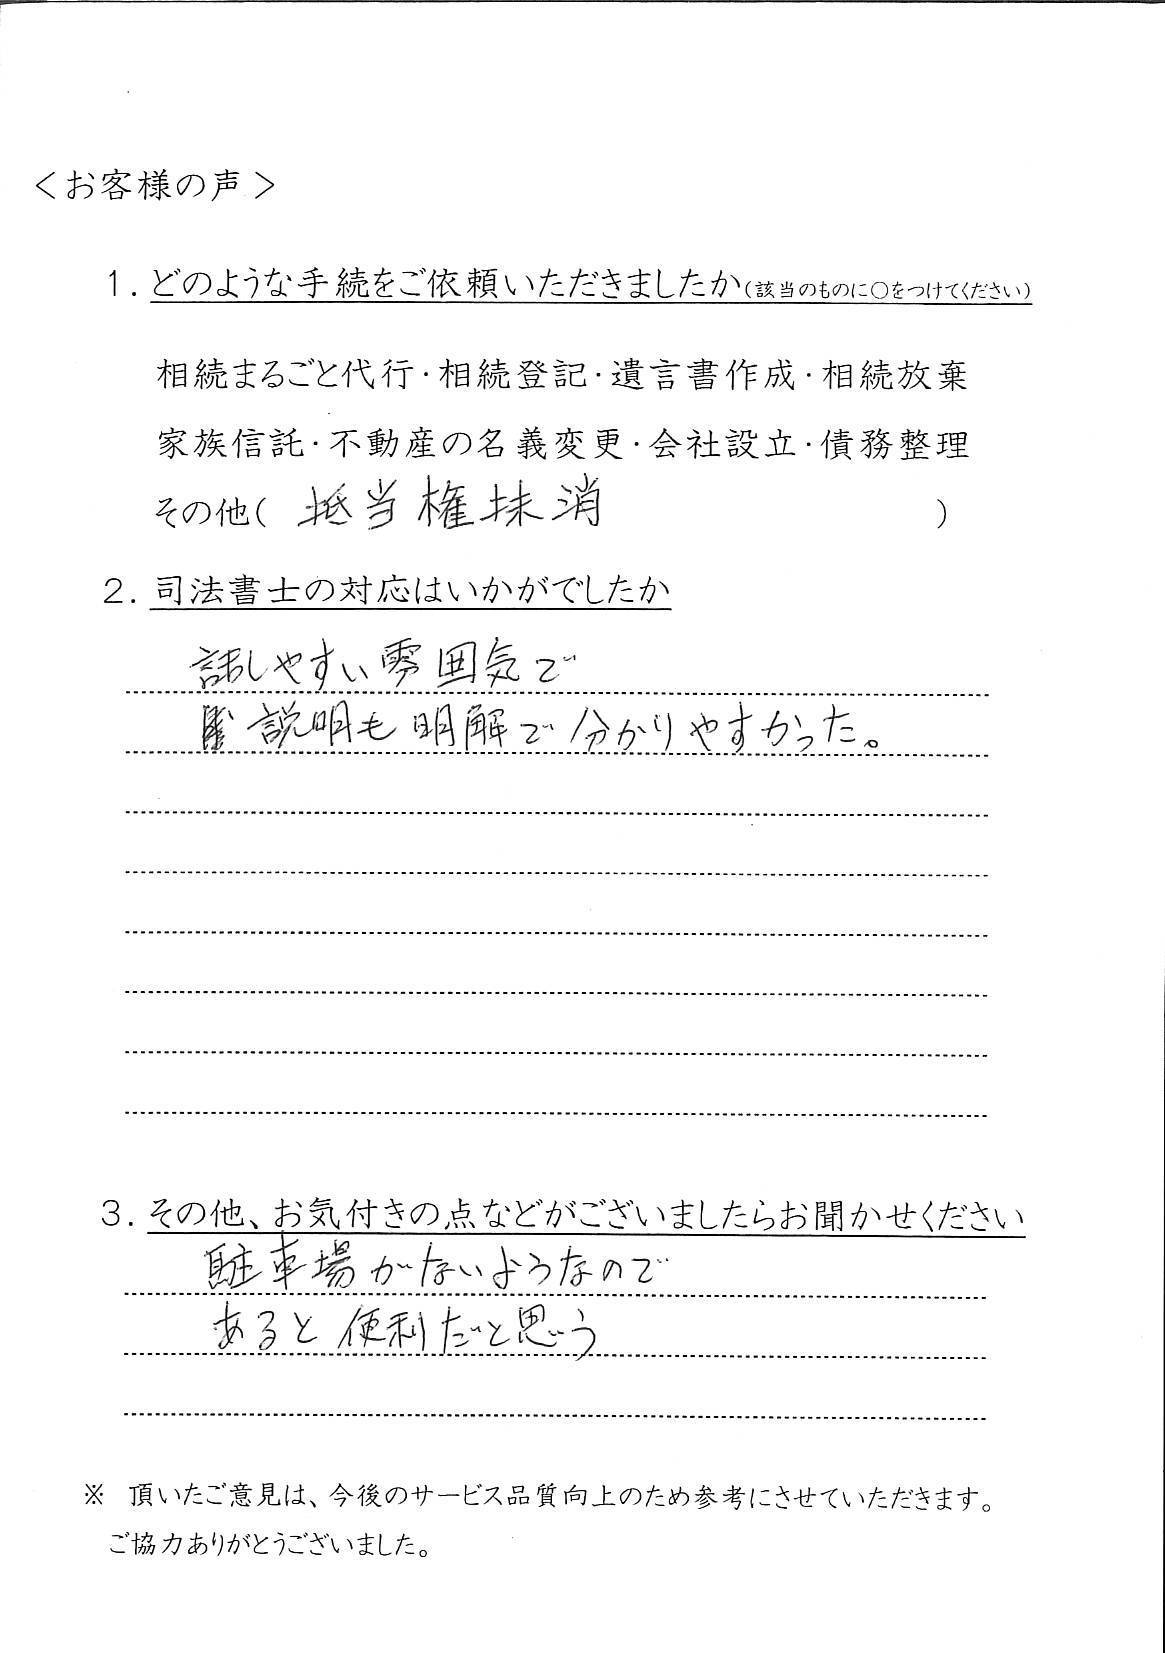 ＜お客様の声＞
1．どのような手続をご依頼いただきましたか（該当のものに○をつけてください）
相続まるごと代行・相続登記・遺言書作成・相続放棄
家族信託・不動産の名義変更・会社設立・債務整理
その他（ 抵当権抹消 ）
2．司法書士の対応はいかがでしたか
話しやすい雰囲気で
説明も明解で分かりやすかった。
3．その他、お気付きの点などがございましたらお聞かせください
駐車場がないようなので
あると便利だと思う
※ 頂いたご意見は、今後のサービス品質向上のため参考にさせていただきます。
ご協力ありがとうございました。